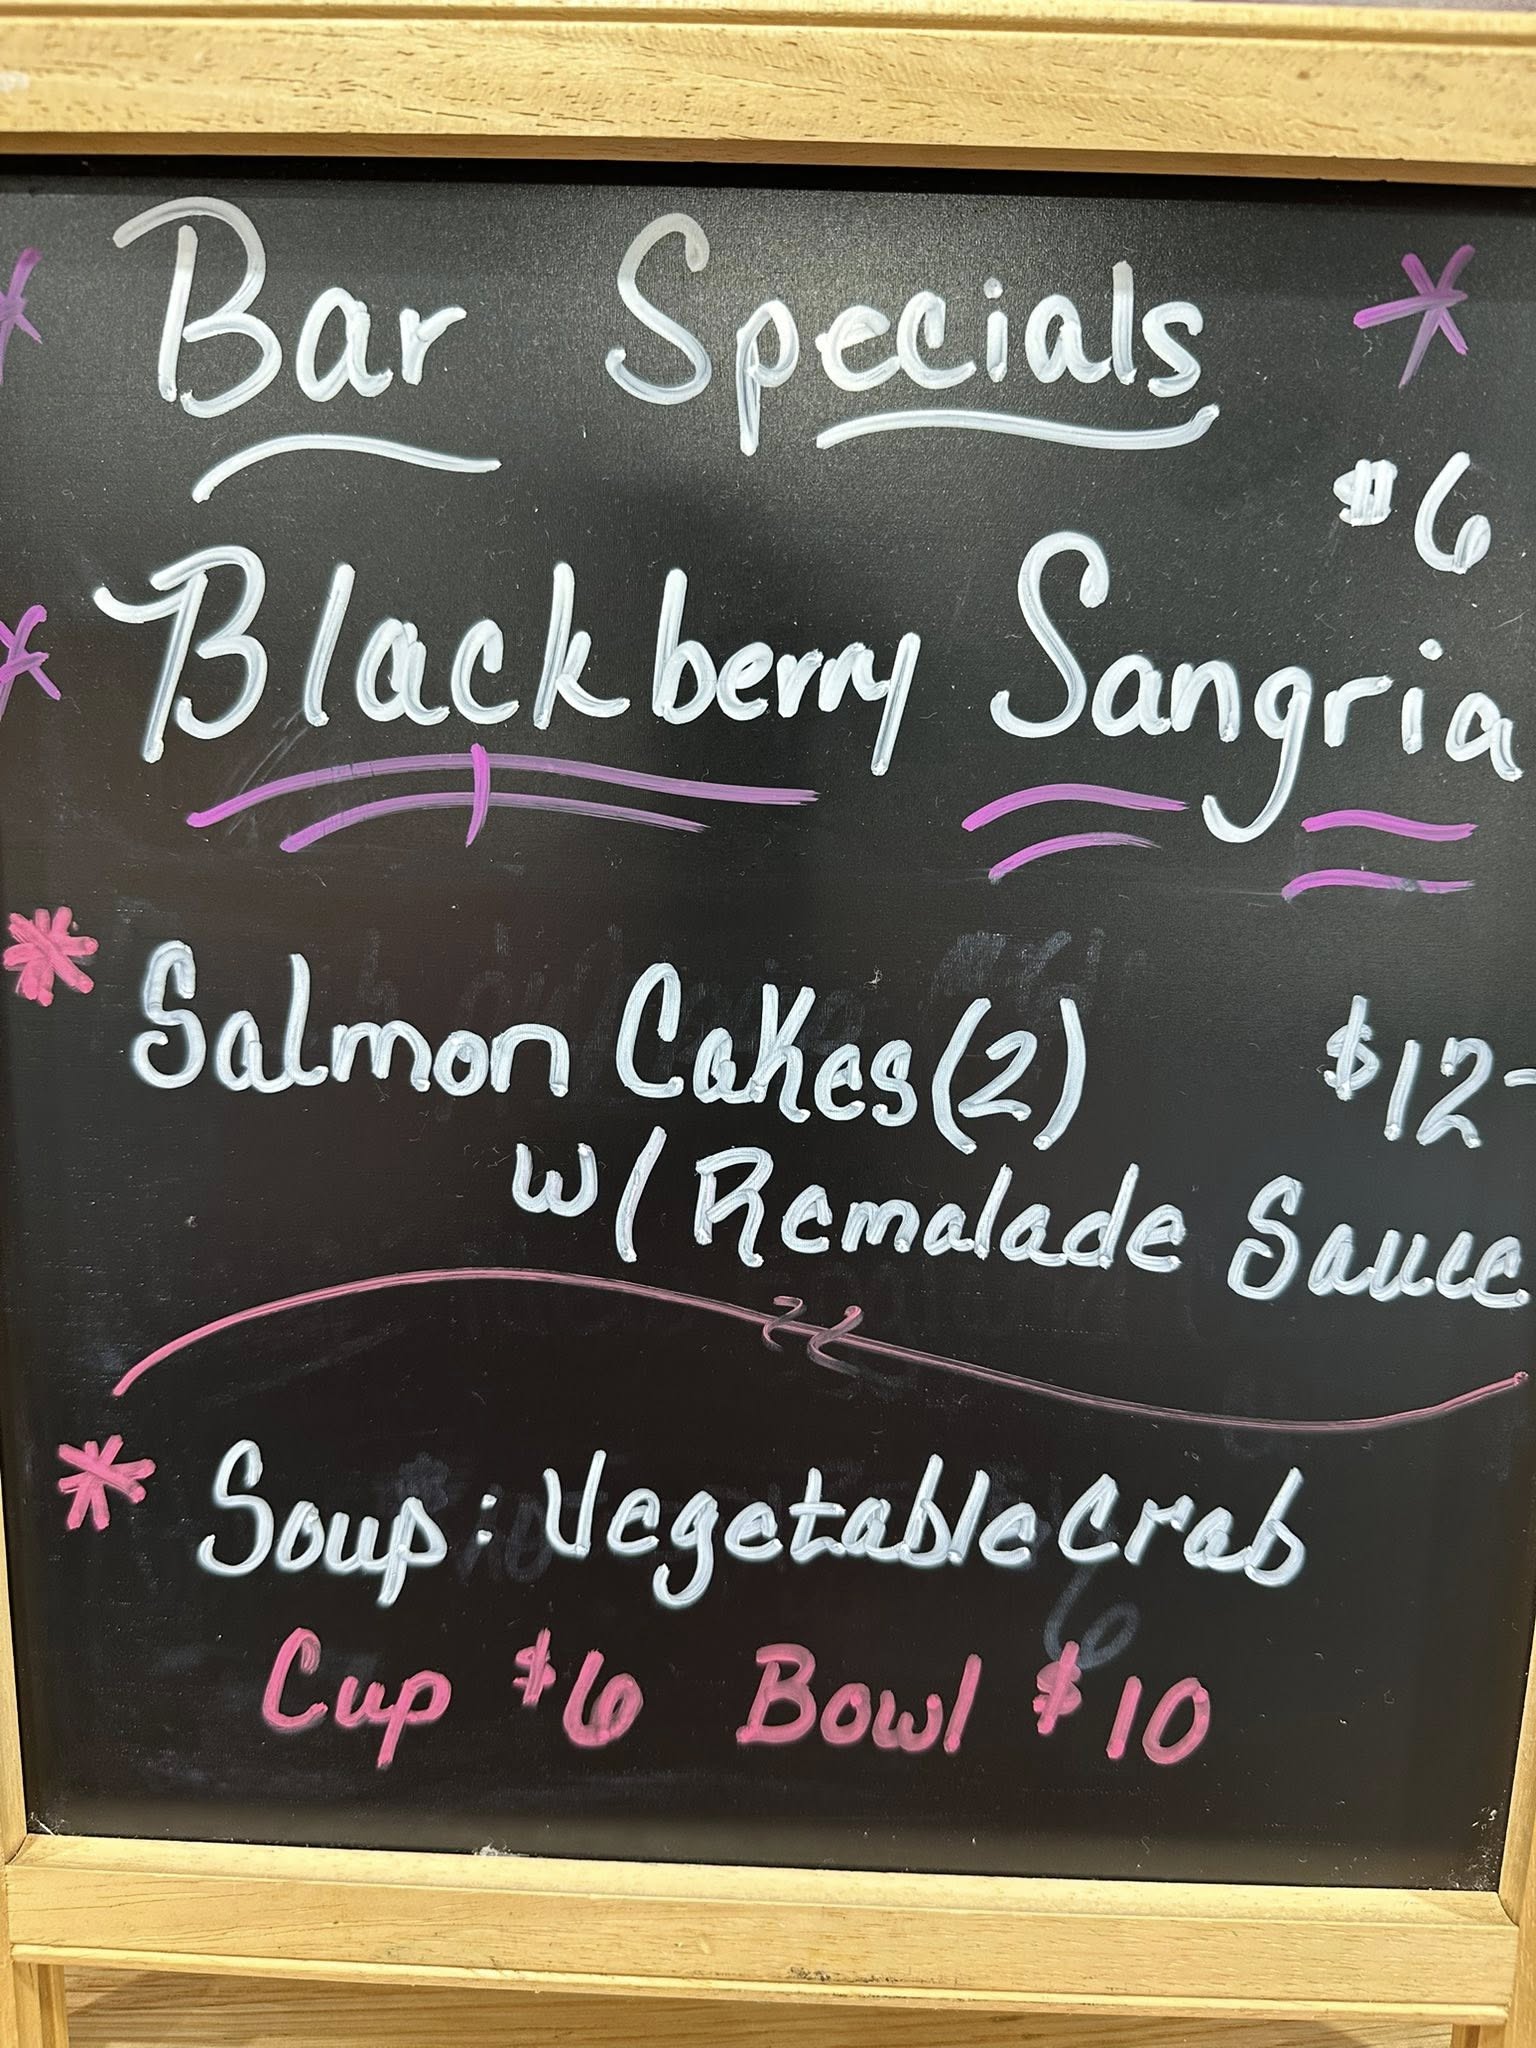 Bar Specials
$6
Blackberry Sangria
Salmon Cakes (2) $12-
w/ Remalade Sauce
Soup: Vegetable Crab
Cup $6 Bowl $10